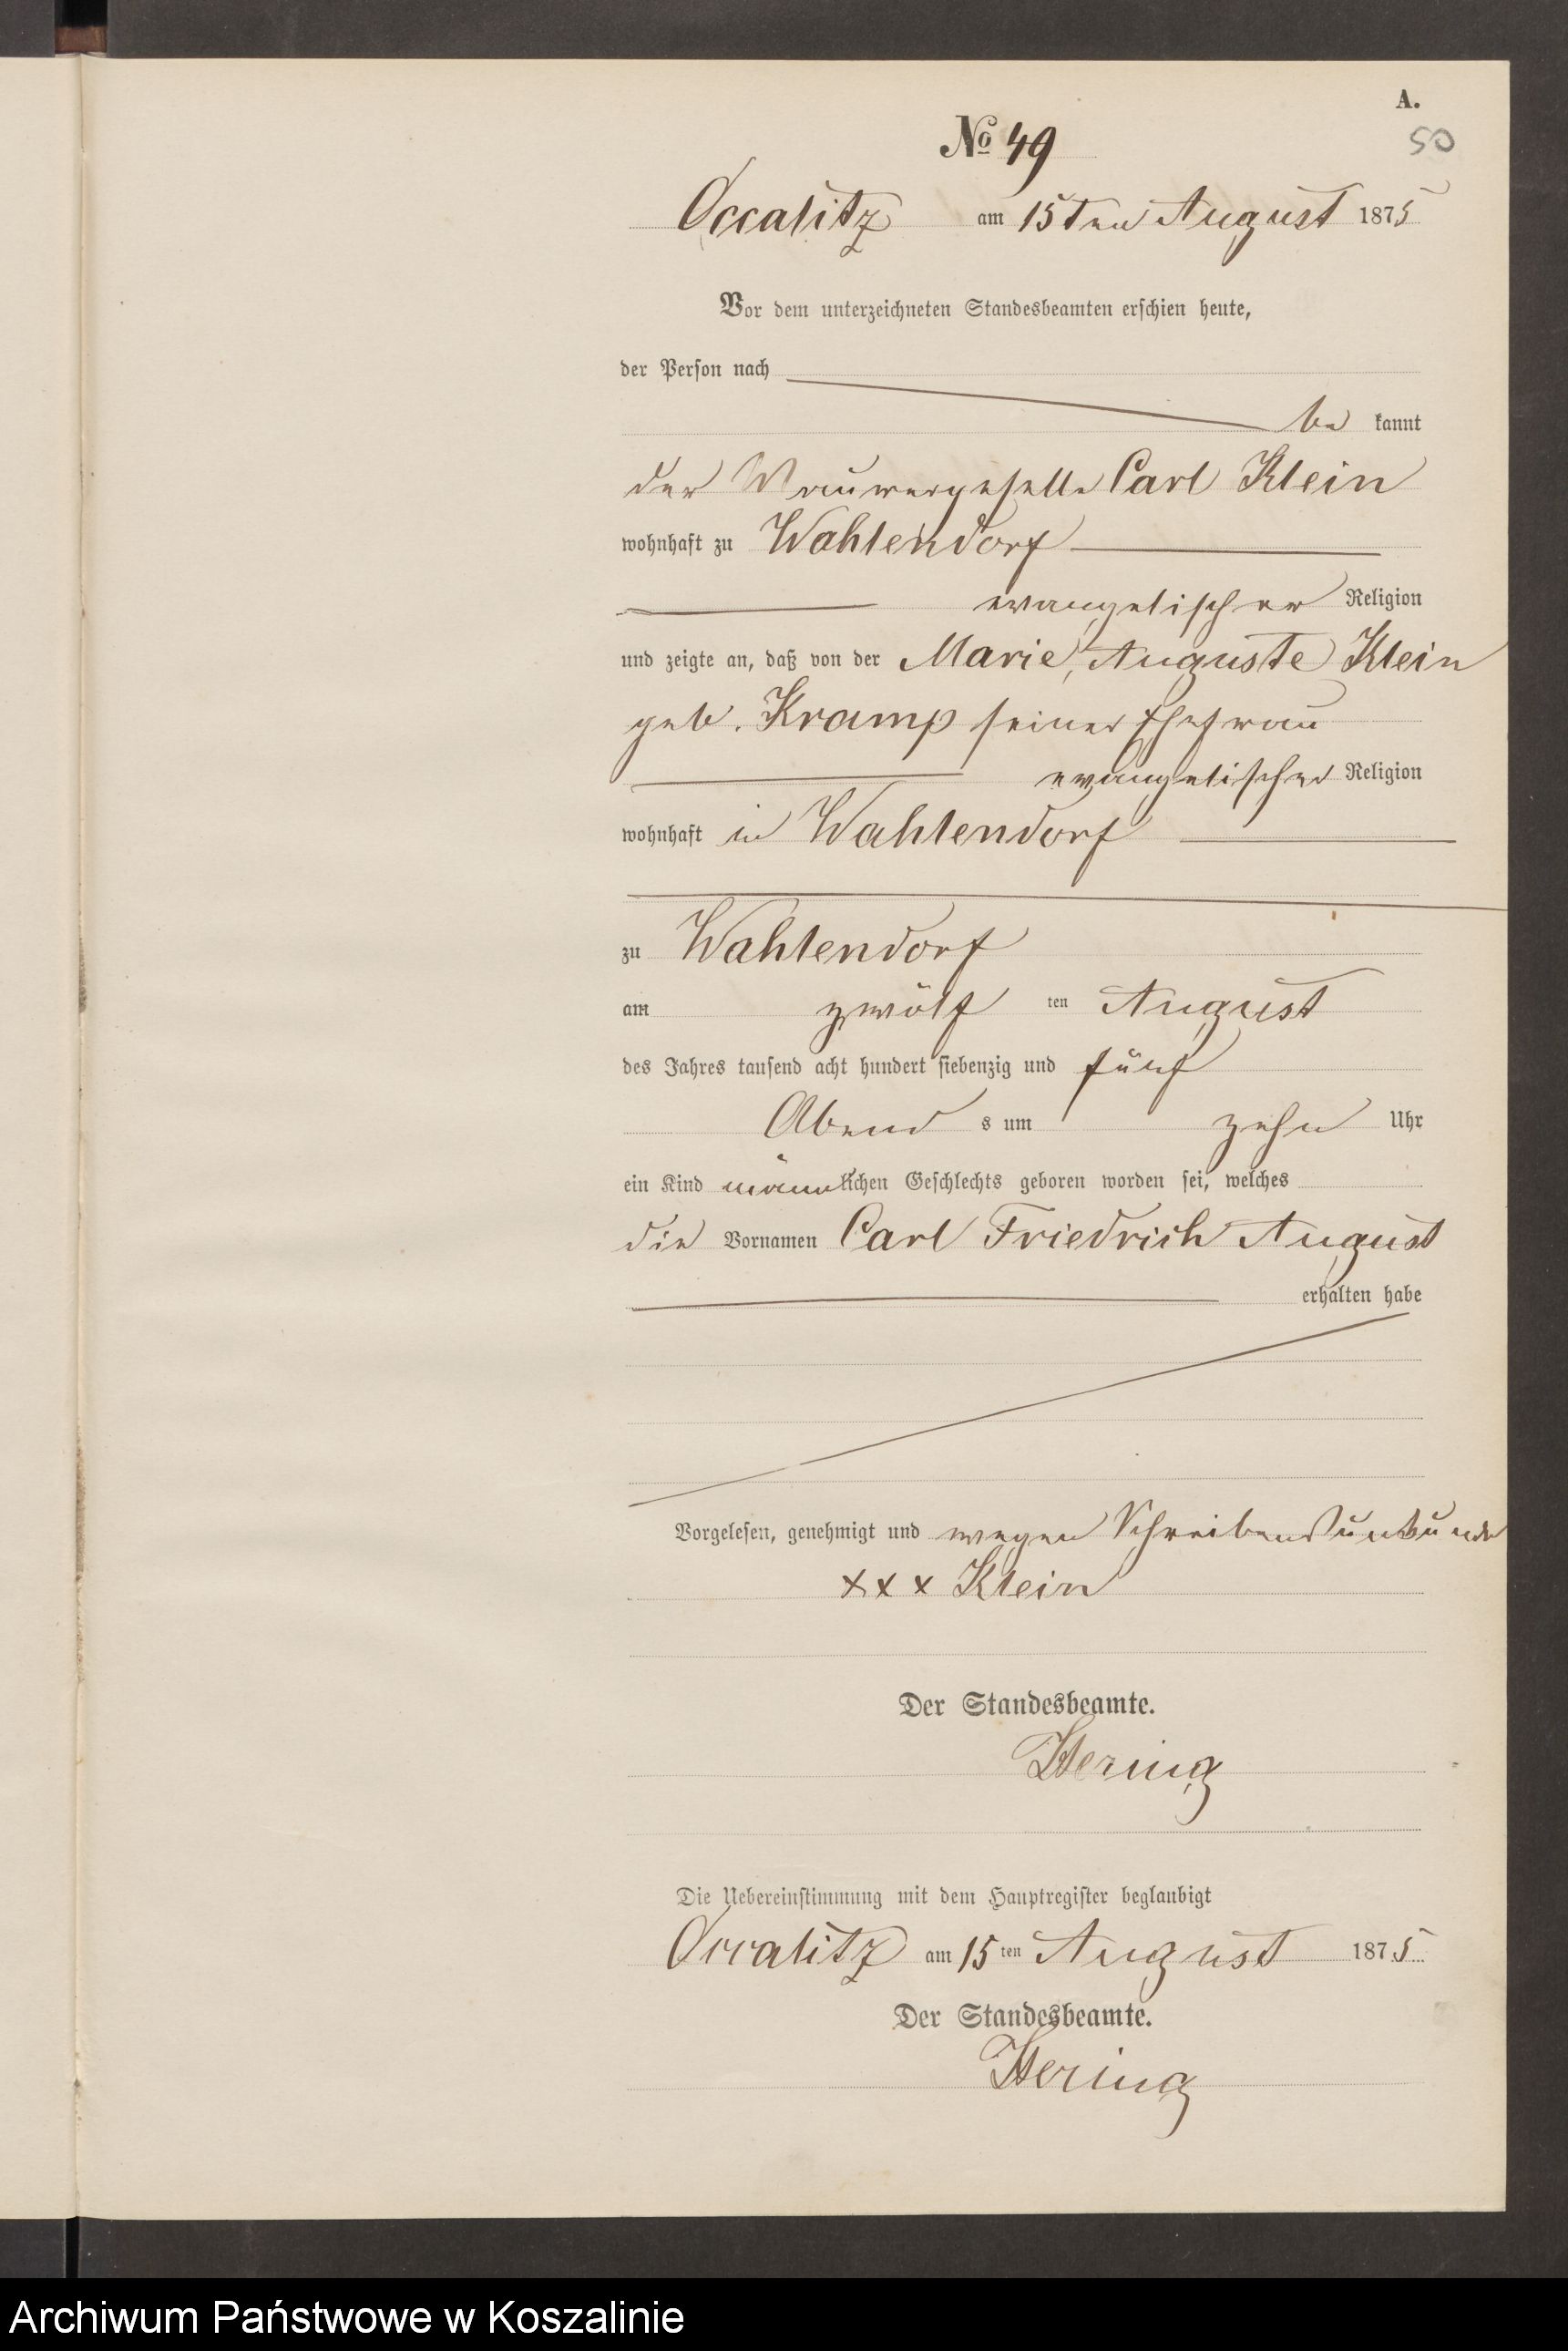 A.
№ 49
50
Occalitz am 15ten August 1875
Vor dem unterzeichneten Standesbeamten erschien heute,
der Person nach
be kannt
der Mauergeselle Carl Klein
wohnhaft zu Wahlendorf
evangelischer Religion
und zeigte an, daß von der Marie, Auguste Klein
geb. Kramp seiner Ehefrau
evangelischer Religion
wohnhaft in Wahlendorf
zu Wahlendorf
am zwölf ten August
des Jahres tausend acht hundert siebenzig und fünf
Abend s um zehn Uhr
ein Kind männlichen Geschlechts geboren worden sei, welches
die Vornamen Carl Friedrich August
erhalten habe
Vorgelesen, genehmigt und wegen Schreibensunkunde
xxx Klein
Der Standesbeamte.
Hering
Die Uebereinstimmung mit dem Hauptregister beglaubigt
Occalitz am 15 ten August 1875
Der Standesbeamte.
Hering
Archiwum Państwowe w Koszalinie